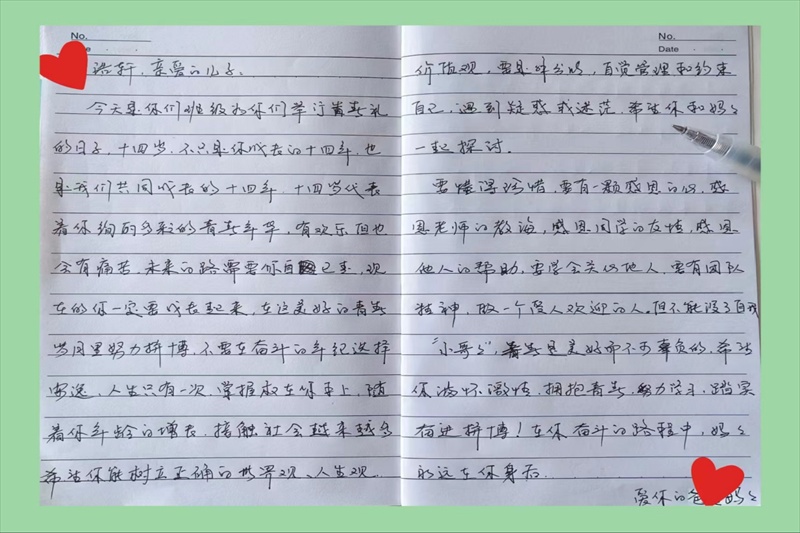 No.
Date
轩，亲爱的儿子、
今天是你们班级为你们举行青春礼
的日子，十四岁，不只是你成长的十四年，也
是我们共同成长的十四年，十四岁代表
着你绚丽多彩的青春年华，有欢乐但也
会有痛苦，未来的路需要你自己走，现
在的你一定要成长起来，在这美好的青春
岁月里努力拼博，不要在奋斗的年纪选择
安逸，人生只有一次，掌握权在你手上，随
着你年龄的增长，接触社会越来越多
希望你能树立正确的世界观、人生观、
No.
Date
价值观，要是非分明，自觉管理和约束
自己，遇到疑惑或迷茫，希望你和妈妈
一起探讨。
要懂得珍惜，要有一颗感恩的心，感
恩老师的教诲，感恩同学的友情，感恩
他人的帮助，要学会关心他人，要有团队
精神，做一个受人欢迎的人。但不能没了自我
“小哥”，青春是美好而不可辜负的，希望
你满怀激情，拥抱青春，努力学习，踏实
奋进拼博！在你奋斗的路程中，妈妈
永远在你身后．
爱你的爸 妈妈